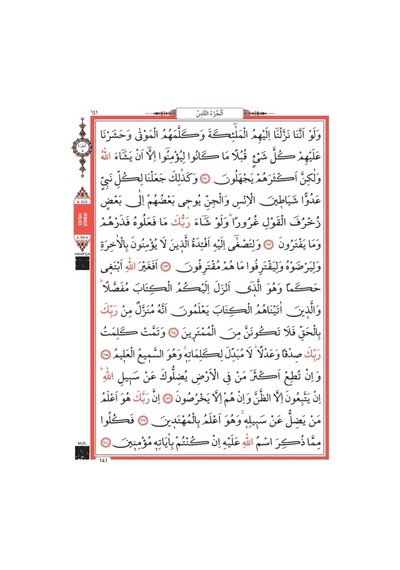 ١٤١
اَلْجُزْءُ الثَّامِنُ
وَلَوْ اَنَّنَا نَزَّلْنَٓا اِلَيْهِمُ الْمَلٰٓئِكَةَ وَكَلَّمَهُمُ الْمَوْتٰى وَحَشَرْنَا
عَلَيْهِمْ كُلَّ شَيْءٍ قُبُلًا مَا كَانُوا لِيُؤْمِنُٓوا اِلَّٓا اَنْ يَشَٓاءَ اللّٰهُ
وَلٰكِنَّ اَكْثَرَهُمْ يَجْهَلُونَ ﴿١١١﴾ وَكَذٰلِكَ جَعَلْنَا لِكُلِّ نَبِيٍّ
عَدُوًّا شَيَاطٖينَ الْاِنْسِ وَالْجِنِّ يُوحٖى بَعْضُهُمْ اِلٰى بَعْضٍ
زُخْرُفَ الْقَوْلِ غُرُورًاۜ وَلَوْ شَٓاءَ رَبُّكَ مَا فَعَلُوهُ فَذَرْهُمْ
وَمَا يَفْتَرُونَ ﴿١١٢﴾ وَلِتَصْغٰٓى اِلَيْهِ اَفْـِٔدَةُ الَّذٖينَ لَا يُؤْمِنُونَ بِالْاٰخِرَةِ
وَلِيَرْضَوْهُ وَلِيَقْتَرِفُوا مَا هُمْ مُقْتَرِفُونَ ﴿١١٣﴾ اَفَغَيْرَ اللّٰهِ اَبْتَغٖى
حَكَمًا وَهُوَ الَّذٖٓى اَنْزَلَ اِلَيْكُمُ الْكِتَابَ مُفَصَّلًاۜ
وَالَّذٖينَ اٰتَيْنَاهُمُ الْكِتَابَ يَعْلَمُونَ اَنَّهُ مُنَزَّلٌ مِنْ رَبِّكَ
بِالْحَقِّ فَلَا تَكُونَنَّ مِنَ الْمُمْتَرٖينَ ﴿١١٤﴾ وَتَمَّتْ كَلِمَتُ
رَبِّكَ صِدْقًا وَعَدْلًاۜ لَا مُبَدِّلَ لِكَلِمَاتِهٖۚ وَهُوَ السَّمٖيعُ الْعَلٖيمُ ﴿١١٥﴾
وَاِنْ تُطِعْ اَكْثَرَ مَنْ فِي الْاَرْضِ يُضِلُّوكَ عَنْ سَبٖيلِ اللّٰهِۜ
اِنْ يَتَّبِعُونَ اِلَّا الظَّنَّ وَاِنْ هُمْ اِلَّا يَخْرُصُونَ ﴿١١٦﴾ اِنَّ رَبَّكَ هُوَ اَعْلَمُ
مَنْ يَضِلُّ عَنْ سَبٖيلِهٖۚ وَهُوَ اَعْلَمُ بِالْمُهْتَدٖينَ ﴿١١٧﴾ فَكُلُوا
مِمَّا ذُكِرَ اسْمُ اللّٰهِ عَلَيْهِ اِنْ كُنْتُمْ بِاٰيَاتِهٖ مُؤْمِنٖينَ ﴿١١٨﴾
141